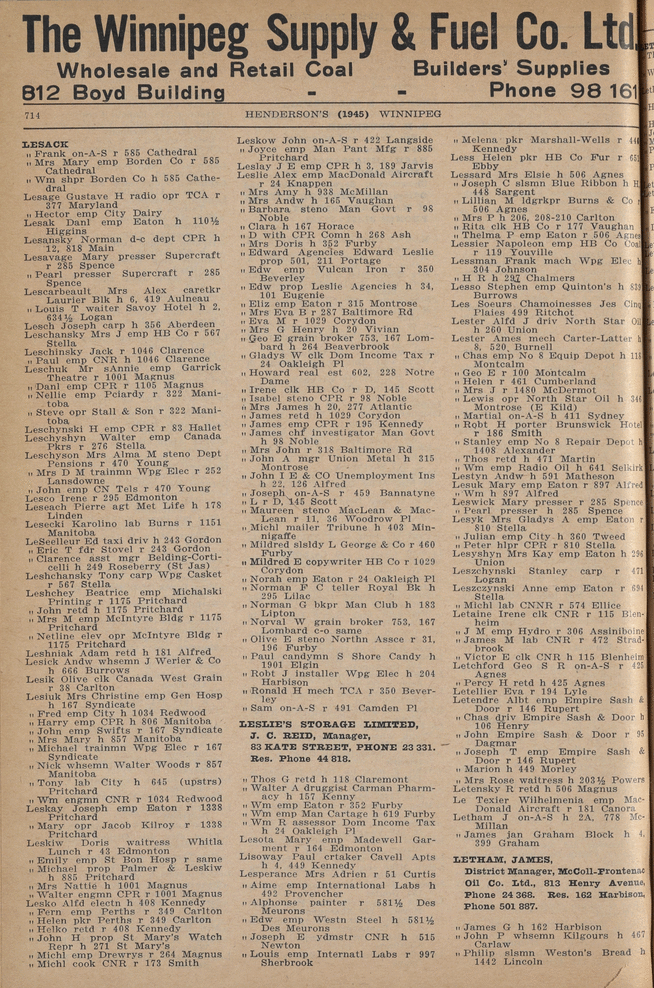 The Winnipeg Supply & Fuel Co. Ltd.
Wholesale and Retail Coal Builders' Supplies
812 Boyd Building - - Phone 98 161
714 HENDERSON'S (1945) WINNIPEG
LESACK
" Frank on-A-S r 585 Cathedral
" Mrs Mary emp Borden Co r 585
Cathedral
" Wm shpr Borden Co h 585 Cathe-
dral
Lesage Gustave H radio opr TCA r
377 Maryland
" Hector emp City Dairy
Lesak Danl emp Eaton h 110½
Higgins
Lesansky Norman d-c dept CPR h
12, 818 Main
Lesavage Mary presser Supercraft
r 285 Spence
" Pearl presser Supercraft r 285
Spence
Lescarbeault Mrs Alex caretkr
Laurier Blk h 6, 419 Aulneau
" Louis T waiter Savoy Hotel h 2,
634½ Logan
Lesch Joseph carp h 356 Aberdeen
Leschansky Mrs J emp HB Co r 567
Stella
Leschinsky Jack r 1046 Clarence
" Paul emp CNR h 1046 Clarence
Leschuk Mr sAnnie emp Garrick
Theatre r 1001 Magnus
" Danl emp CPR r 1105 Magnus
" Nellie emp Pciardy r 322 Mani-
toba
" Steve opr Stall & Son r 322 Mani-
toba
Leschynski H emp CPR r 83 Hallet
Leschyshyn Walter emp Canada
Pkrs r 276 Stella
Leschyson Mrs Alma M steno Dept
Pensions r 470 Young
" Mrs D M trainmn Wpg Elec r 252
Lansdowne
" John emp CN Tels r 470 Young
Lesco Irene r 295 Edmonton
Leseach Pierre agt Met Life h 178
Linden
Lesecki Karolino lab Burns r 1151
Manitoba
LeSeelleur Ed taxi driv h 243 Gordon
" Eric T fdr Stovel r 243 Gordon
" Clarence asst mgr Belding-Corti-
celli h 249 Roseberry (St Jas)
Leshchansky Tony carp Wpg Casket
r 567 Stella
Leshchey Beatrice emp Michalski
Printing r 1175 Pritchard
" John retd h 1175 Pritchard
" Mrs M emp McIntyre Bldg r 1175
Pritchard
" Netline elev opr McIntyre Bldg r
1175 Pritchard
Leshniak Adam retd h 181 Alfred
Lesick Andw whsemn J Werier & Co
h 666 Burrows
Lesik Olive clk Canada West Grain
r 38 Carlton
Lesiuk Mrs Christine emp Gen Hosp
h 167 Syndicate
" Fred emp City h 1034 Redwood
" Harry emp CPR h 806 Manitoba
" John emp Swifts r 167 Syndicate
" Mrs Mary h 857 Manitoba
" Michael trainmn Wpg Elec r 167
Syndicate
" Nick whsemn Walter Woods r 857
Manitoba
" Tony lab City h 645 (upstrs)
Pritchard
" Wm engmn CNR r 1034 Redwood
Leskay Joseph emp Eaton r 1338
Pritchard
" Mary opr Jacob Kilroy r 1338
Pritchard
Leskiw Doris waitress Whitla
Lunch r 43 Edmonton
" Emily emp St Bon Hosp r same
" Michael prop Palmer & Leskiw
h 885 Pritchard
" Mrs Nattie h 1001 Magnus
" Walter engmn CPR r 1001 Magnus
Lesko Alfd electn h 408 Kennedy
" Fern emp Perths r 349 Carlton
" Helen pkr Perths r 349 Carlton
" Helko retd r 408 Kennedy
" John H prop St Mary's Watch
Repr h 271 St Mary's
" Michl emp Drewrys r 264 Magnus
" Michl cook CNR r 173 Smith
Leskow John on-A-S r 422 Langside
" Joyce emp Man Pant Mfg r 885
Pritchard
Leslay J E emp CPR h 3, 189 Jarvis
Leslie Alex emp MacDonald Aircraft
r 24 Knappen
" Mrs Amy h 938 McMillan
" Mrs Andw h 165 Vaughan
" Barbara steno Man Govt r 98
Noble
" Clara h 167 Horace
" D with CPR Comn h 268 Ash
" Mrs Doris h 352 Furby
" Edward Agencies Edward Leslie
prop 501, 211 Portage
" Edw emp Vulcan Iron r 350
Beverley
" Edw prop Leslie Agencies h 34,
101 Eugenie
" Eliz emp Eaton r 315 Montrose
" Mrs Eva B r 287 Baltimore Rd
" Eva M r 1029 Cordyon
" Mrs G Henry h 20 Vivian
" Geo E grain broker 753, 167 Lom-
bard h 264 Beaverbrook
" Gladys W clk Dom Income Tax r
24 Oakleigh Pl
" Howard real est 602, 228 Notre
Dame
" Irene clk HB Co r D, 145 Scott
" Isabel steno CPR r 98 Noble
" Mrs James h 20, 277 Atlantic
" James retd h 1029 Corydon
" James emp CPR r 195 Kennedy
" James chf investigator Man Govt
h 98 Noble
" Mrs John r 318 Baltimore Rd
" John A mgr Union Metal h 315
Montrose
" John I E & CO Unemployment Ins
h 22, 126 Alfred
" Joseph on-A-S r 459 Bannatyne
" L r D, 145 Scott
" Maureen steno MacLean & Mac-
Lean r 11, 36 Woodrow Pl
" Michl mailer Tribune h 403 Min-
nigaffe
" Mildred slsldy L George & Co r 460
Furby
" Mildred E copywriter HB Co r 1029
Corydon
" Norah emp Eaton r 24 Oakleigh Pl
" Norman F C teller Royal Bk h
295 Lilac
" Norman G bkpr Man Club h 183
Lipton
" Norval W grain broker 753, 167
Lombard c-o same
" Olive E steno Northn Assce r 31,
196 Furby
" Paul candymn S Shore Candy h
1901 Elgin
" Robt J installer Wpg Elec h 204
Harbison
" Ronald H mech TCA r 350 Bever-
ley
" Sam on-A-S r 491 Camden Pl
LESLIE'S STORAGE LIMITED,
J. C. REID, Manager,
83 KATE STREET, PHONE 23 331.
Res. Phone 44 818.
" Thos G retd h 118 Claremont
" Walter A druggist Carman Pharm-
acy h 157 Kenny
" Wm emp Eaton r 352 Furby
" Wm emp Man Cartage h 619 Furby
" Wm R assessor Dom Income Tax
h 24 Oakleigh Pl
Lesota Mary emp Madewell Gar-
ment r 164 Edmonton
Lisoway Paul crtaker Cavell Apts
h 4, 449 Kennedy
Lesperance Mrs Adrien r 51 Curtis
" Aime emp International Labs h
492 Provencher
" Alphonse painter r 581½ Des
Meurons
" Edw emp Westn Steel h 581½
Des Meurons
" Joseph E ydmstr CNR h 515
Newton
" Louis emp Internatl Labs r 997
Sherbrook
" Melena pkr Marshall-Wells r
Kennedy
Less Helen pkr HB Co Fur r
Ebby
Lessard Mrs Elsie h 506 Agnes
" Joseph C slsmn Blue Ribbon h
448 Sargent
" Lillian M ldgrkpr Burns & Co r
506 Agnes
" Mrs P h 206, 208-210 Carlton
" Rita clk HB Co r 177 Vaughan
" Thelma P emp Eaton r 506 Agnes
Lessier Napoleon emp HB Co Coal
r 119 Youville
Lessman Frank mach Wpg Elec h
304 Johnson
" H R h 297 Chalmers
Lesso Stephen emp Quinton's h 839
Burrows
Les Soeurs Chamoinesses Jes Cinq
Plaies 499 Ritchot
Lester Alfd J driv North Star Oil
h 260 Union
Lester Ames mech Carter-Latter h
8, 520 Burnell
" Chas emp No 8 Equip Depot h 118
Montcalm
" Geo E r 100 Montcalm
" Helen r 461 Cumberland
" Mrs J r 1480 McDermot
" Lewis opr North Star Oil h 346
Montrose (E Kild)
" Martial on-A-S h 411 Sydney
" Robt H porter Brunswick Hotel
r 186 Smith
" Stanley emp No 8 Repair Depot h
1408 Alexander
" Thos retd h 471 Martin
" Wm emp Radio Oil h 641 Selkirk
Lestyn Andw h 591 Matheson
Lesuk Mary emp Eaton r 897 Alfred
" Wm h 897 Alfred
Leswick Mary presser r 285 Spence
" Pearl presser h 285 Spence
Lesyk Mrs Gladys A emp Eaton r
810 Stella
" Julian emp City h 360 Tweed
" Peter hlpr CPR r 810 Stella
Lesyshyn Mrs Kay emp Eaton h 296
Union
Leszchynski Stanley carp r 471
Logan
Leszczynski Anne emp Eaton r 694
Stella
" Michl lab CNNR r 574 Ellice
Letaine Irene clk CNR r 115 Blen-
heim
" J M emp Hydro r 306 Assiniboine
" James M lab CNR r 472 Strad-
brook
" Victor E clk CNR h 115 Blenheim
Letchford Geo S R on-A-S r 425
Agnes
" Percy H retd h 425 Agnes
Letellier Eva r 194 Lyle
Letendre Albt emp Empire Sash &
Door r 146 Rupert
" Chas driv Empire Sash & Door h
106 Henry
" John Empire Sash & Door r 95
Dagmar
" Joseph T emp Empire Sash &
Door r 146 Rupert
" Marion h 449 Morley
" Mrs Rose waitress h 203½ Powers
Letensky R retd h 506 Magnus
Le Texier Wilhelmenia emp Mac-
Donald Aircraft r 181 Canora
Letham J on-A-S h 2A, 778 Mc-
Millan
" James jan Graham Block h 4,
399 Graham
LETHAM, JAMES,
District Manager, McColl-Frontenac
Oil Co. Ltd., 813 Henry Avenue,
Phone 24 368. Res. 162 Harbison,
Phone 501 887.
" James G h 162 Harbison
" John P whsemn Kilgours h 467
Carlaw
" Philip slsmn Weston's Bread h
1442 Lincoln